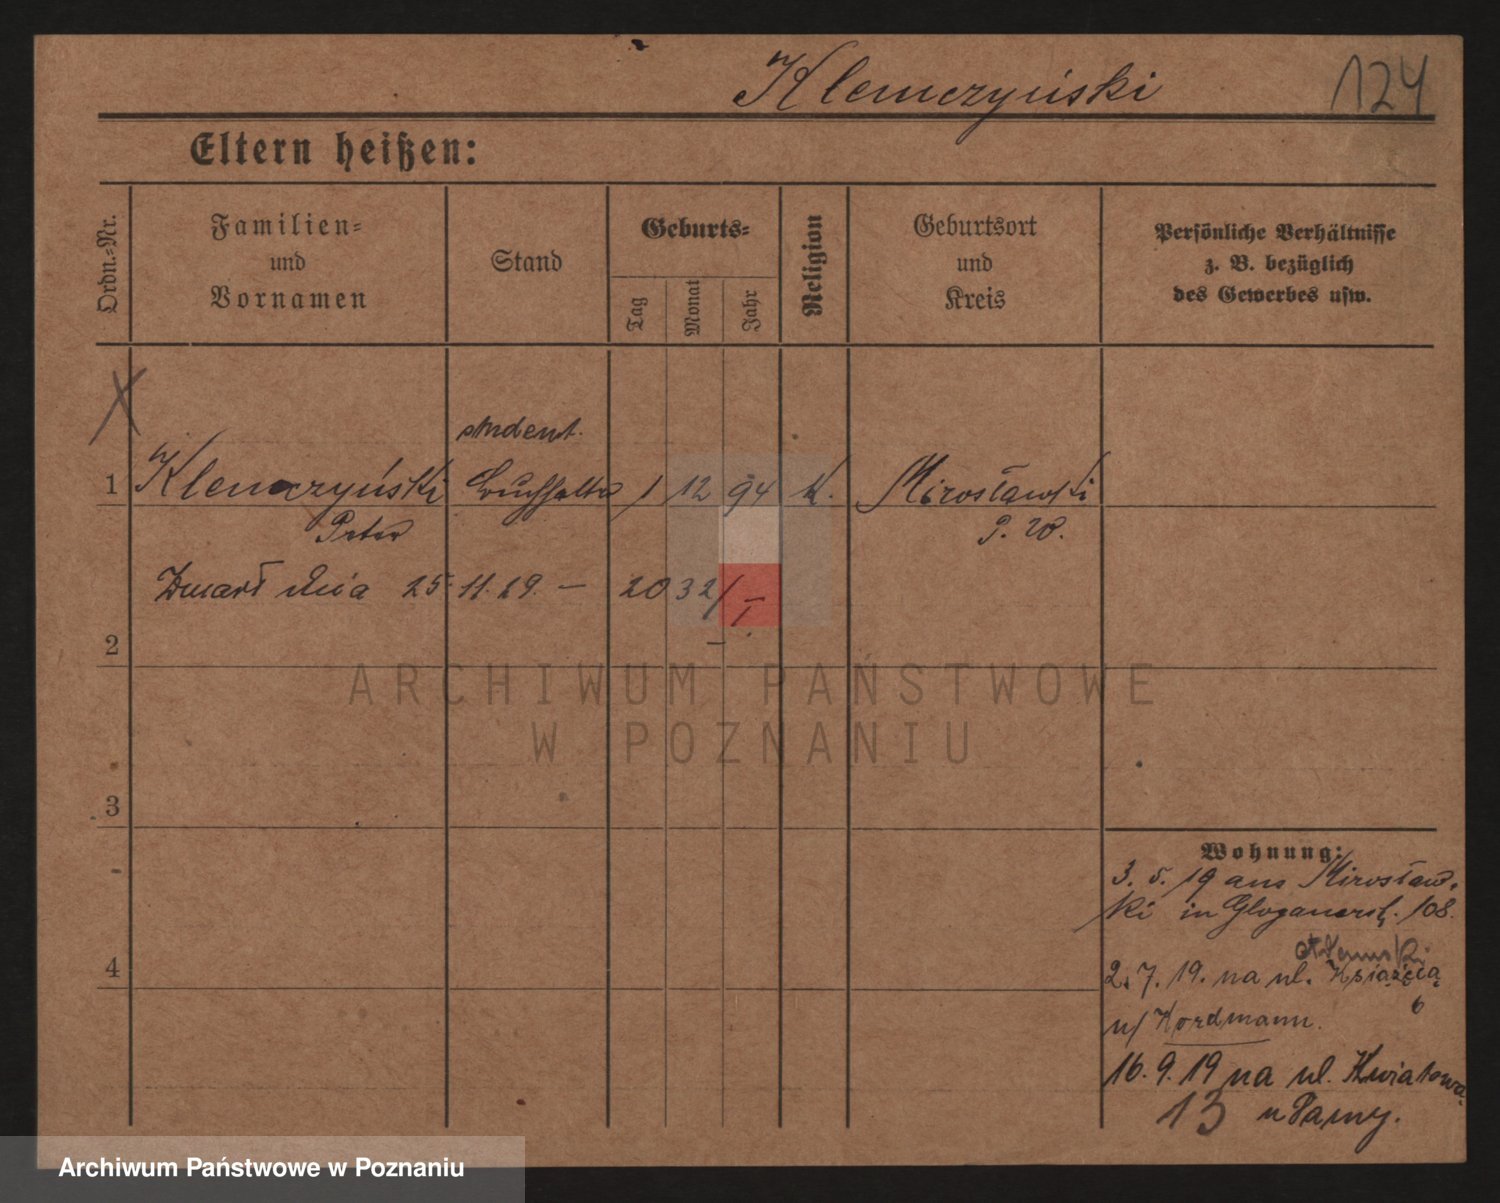 Klemczyński
124
Eltern heißen:
Ordn.-Nr.
Familien-
und
Vornamen
Stand
Geburts-
Tag
Monat
Jahr
Religion
Geburtsort
und
Kreis
Persönliche Verhältnisse
z. B. bezüglich
des Gewerbes usw.
student.
1 Klemczyński Buchhalter 1 12 94 K. Mirosławki
Peter P. W.
Zmarł dnia 25.11.29. — 2032/I
2
ARCHIWUM PAŃSTWOWE
W POZNANIU
3
Wohnung:
3. 5. 19 aus Mirosław-
ki in Glogauerstr. 108.
4
2. 7. 19. na ul. Książęca
6
u/ Nordmann.
16. 9. 19 na ul. Kwiatowa
13 u Panny.
Archiwum Państwowe w Poznaniu